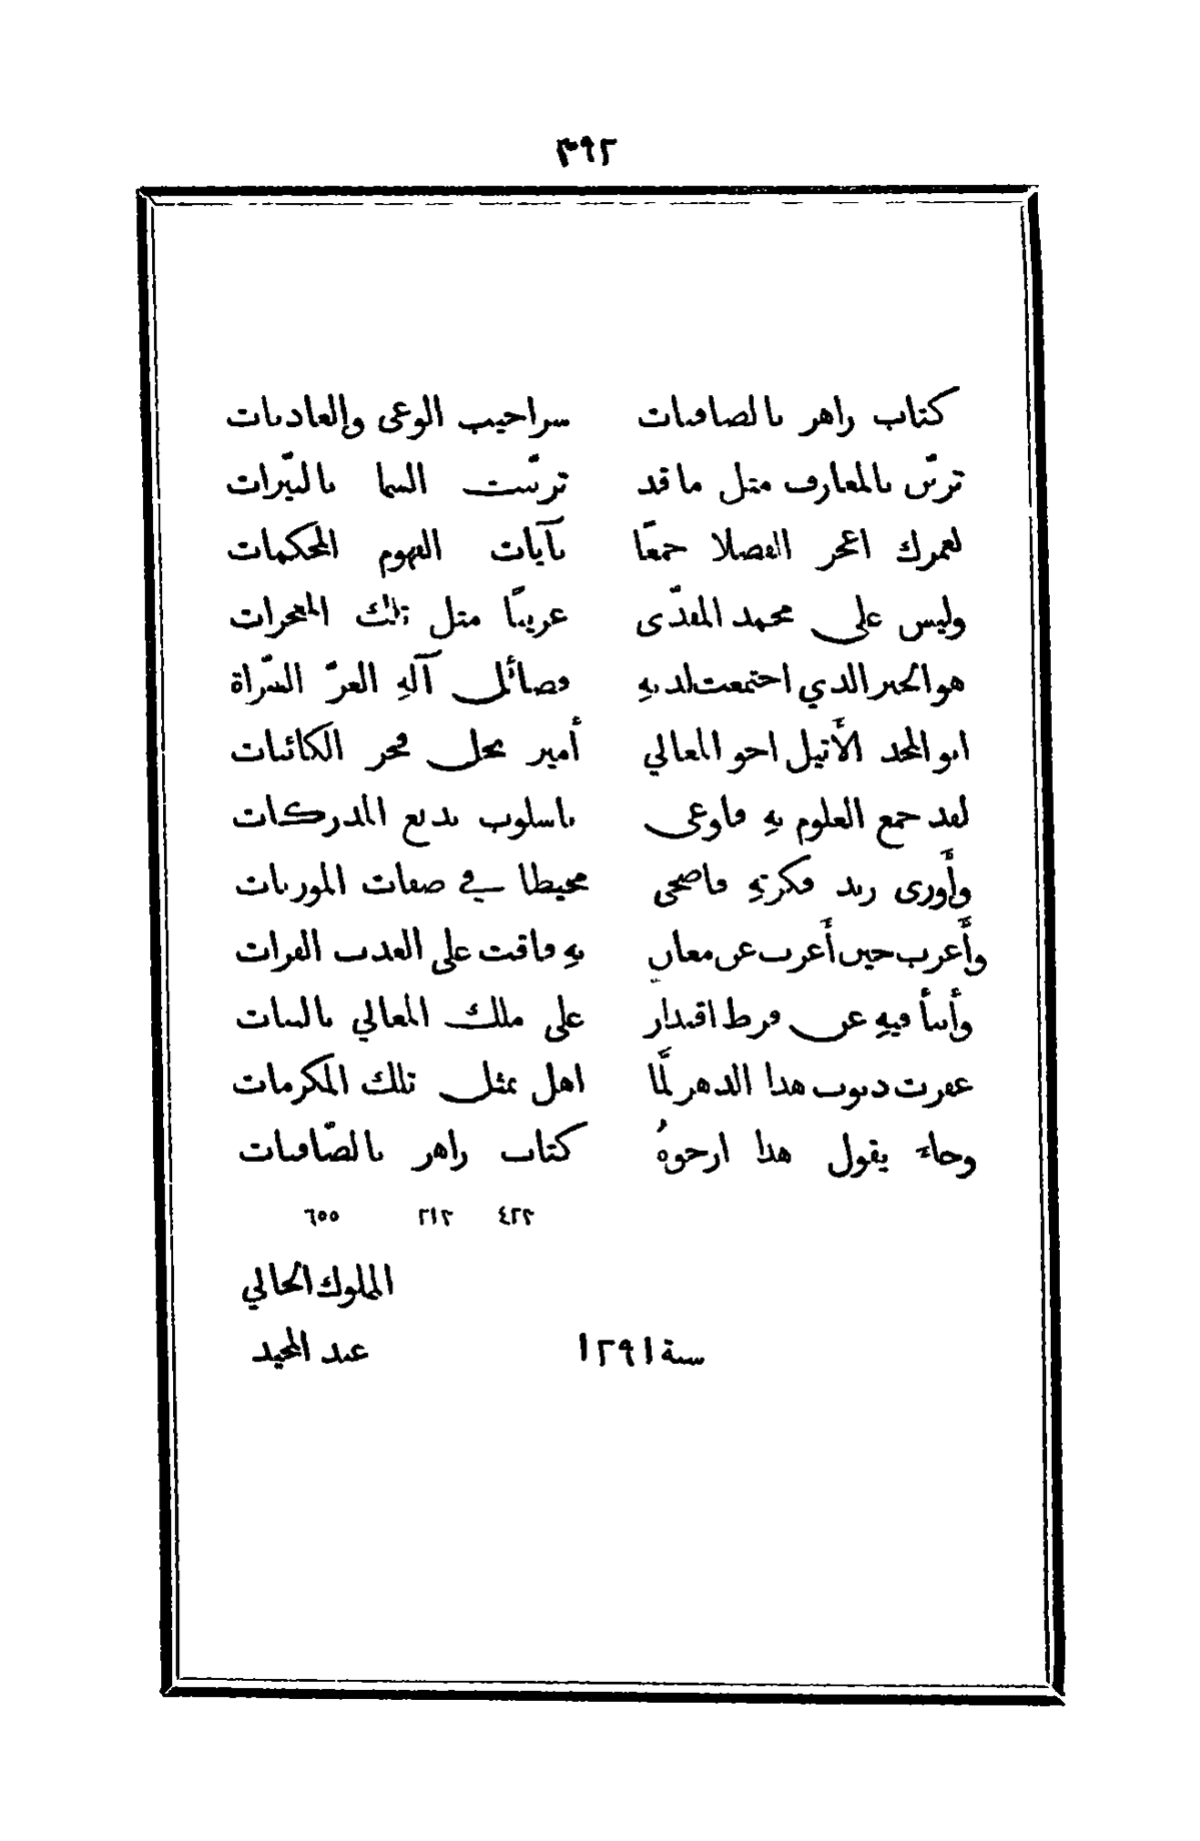 ٣٩٢
كتاب زاهر بالصافنات سراحيب الوغى والعاديات
تزيّن بالمعارف مثل ما قد تزيّنت السما بالنيّرات
لعمرك اعجز الفضلا جمعًا بآيات الفهوم المحكمات
وليس على محمد المفدّى غريبًا مثل تلك المعجزات
هو الحبر الذي اجتمعت لديهِ فضائل آلهِ الغرّ السّراة
ابو المجد الأثيل اخو المعالي أمير نجل فخر الكائنات
لقد جمع العلوم بهِ فاوعى باسلوب بديع المدركات
وأورى زند فكرتهِ فاضحى محيطا في صفات الموريات
وأعرب حين أعرب عن معانٍ بهِ فاقت على العذب الفرات
وأنبأ فيهِ عن فرط اقتدار على ملك المعالي بالبنات
غفرت ذنوب هذا الدهر لمَّا اهل بمثل تلك المكرمات
وجاء يقول هذا ارخوهُ كتاب زاهر بالصّافنات
٤٢٣ ٢١٣ ٦٥٥
المملوك الحالي
سنة ١٢٩١ عبد المجيد